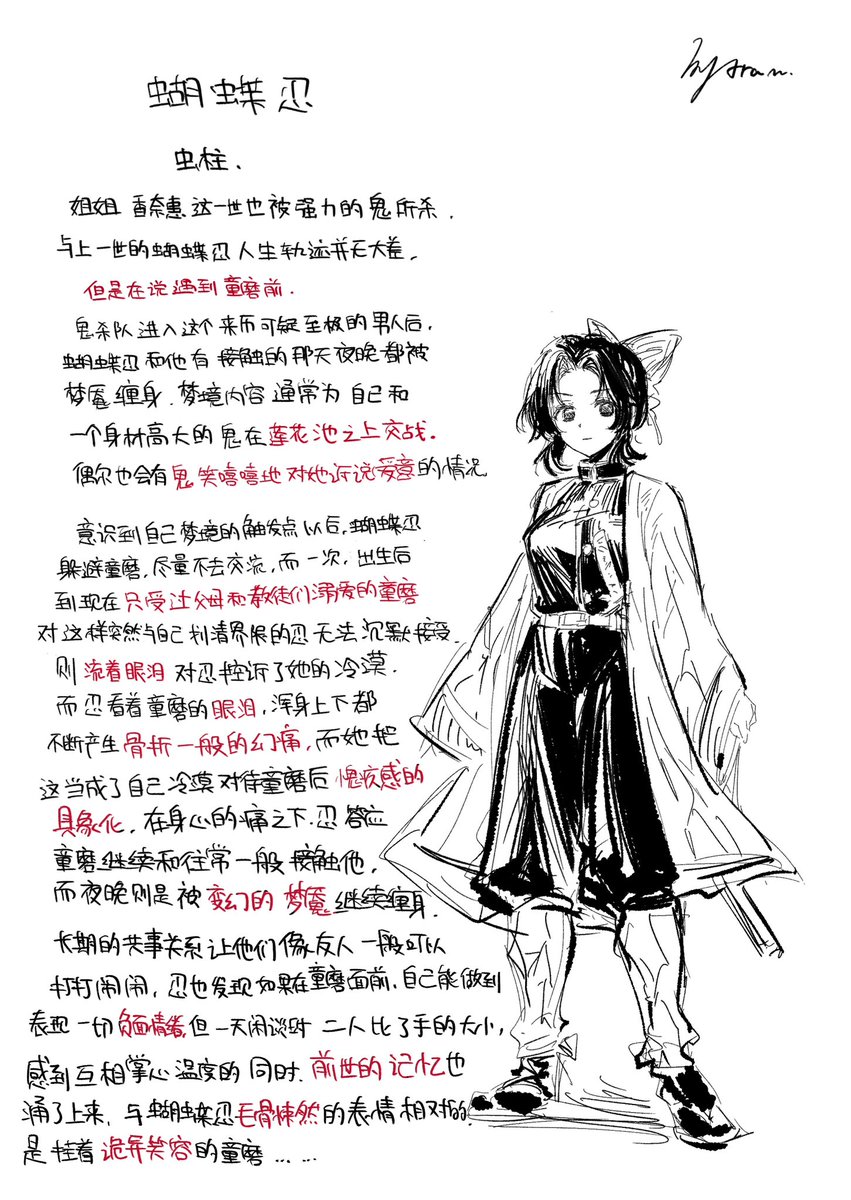 蝴蝶忍
虫柱.
姐姐 香奈惠 这一世也被强力的鬼所杀.
与上一世的蝴蝶忍人生轨迹并无大差,
但是在说遇到童磨前.
鬼杀队进入这个来历可疑至极的男人后,
蝴蝶忍和他有接触的那天夜晚都被
梦魇缠身.梦境内容通常为自己和
一个身材高大的鬼在莲花池之上交战.
偶尔也会有鬼笑嘻嘻地对她诉说爱意的情况
意识到自己梦境的触发点以后,蝴蝶忍
躲避童磨,尽量不去交流,而一次,出生后
到现在只受过父母和教徒们溺爱的童磨
对这样突然与自己划清界限的忍无法沉默接受.
则流着眼泪对忍控诉了她的冷漠.
而忍看着童磨的眼泪,浑身上下都
不断产生骨折一般的幻痛,而她把
这当成了自己冷漠对待童磨后愧疚感的
具象化,在身心的痛之下.忍答应
童磨继续和往常一般接触他,
而夜晚则是被变幻的梦魇继续缠身.
长期的共事关系让他们像友人一般可以
打打闹闹,忍也发现如果在童磨面前,自己能做到
表现一切负面情绪,但一天闲谈时 二人比了手的大小,
感到互相掌心温度的同时.前世的记忆也
涌了上来,与蝴蝶忍毛骨悚然的表情相对的.
是挂着诡异笑容的童磨……